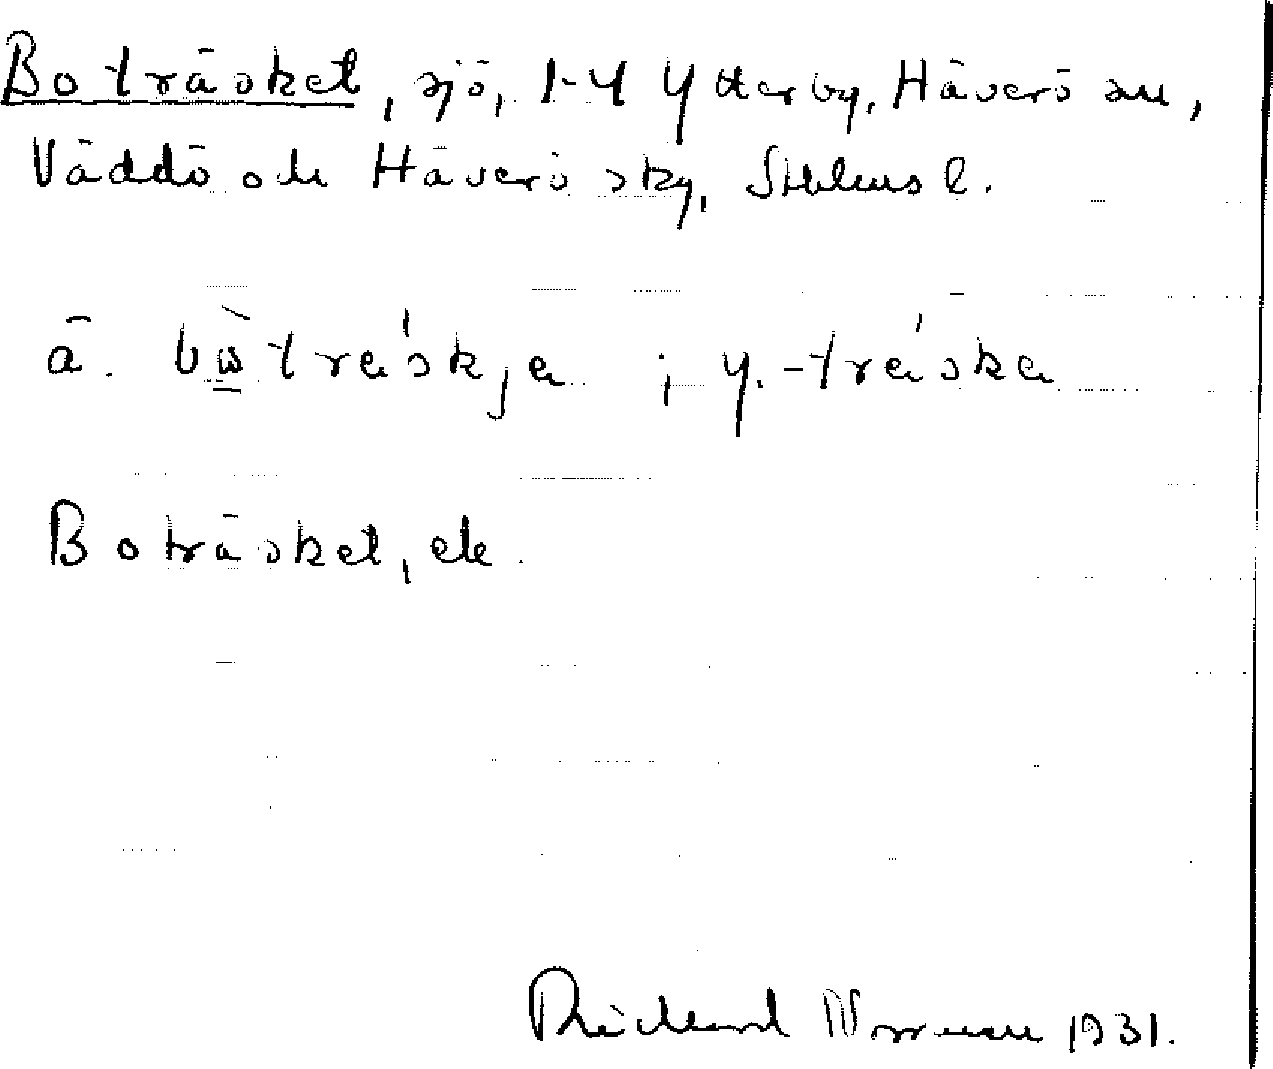 Boträsket, sjö, 1-4 Ytterby, Häverö sn,
Väddö och Häverö skg, Sthlms l.
ä. bὼtrɛ́skja ; y. -trɛ́ska
Boträsket, ek
Rickard Norrman 1931.